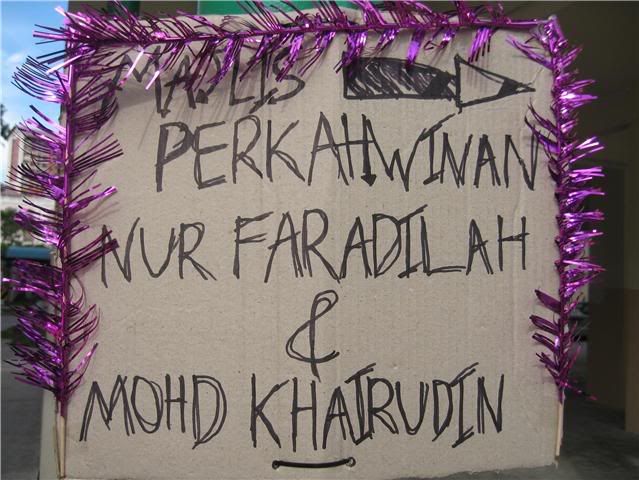 MAJLIS
PERKAHWINAN
NUR FARADILAH
&
MOHD KHAIRUDIN